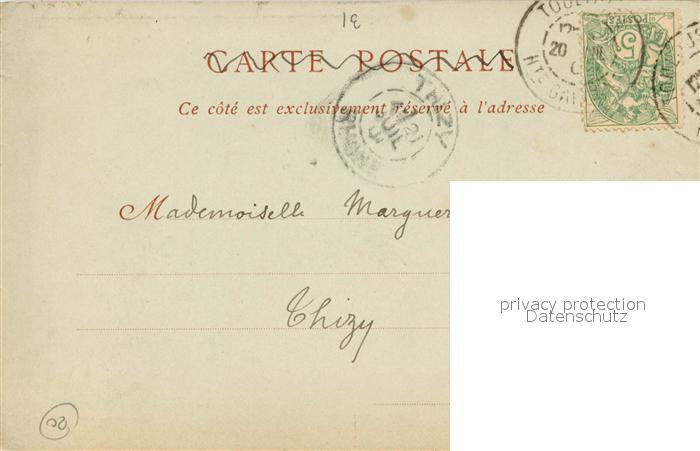 CARTE POSTALE
Ce côté est exclusivement réservé à l'adresse
THIZY
21
JUIL
RHONE
POSTES
5
20
Mademoiselle Marguer
Thizy
privacy protection
Datenschutz